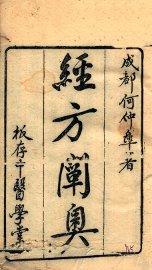 成都何仲皋著
經方闡奧
板存中醫學堂